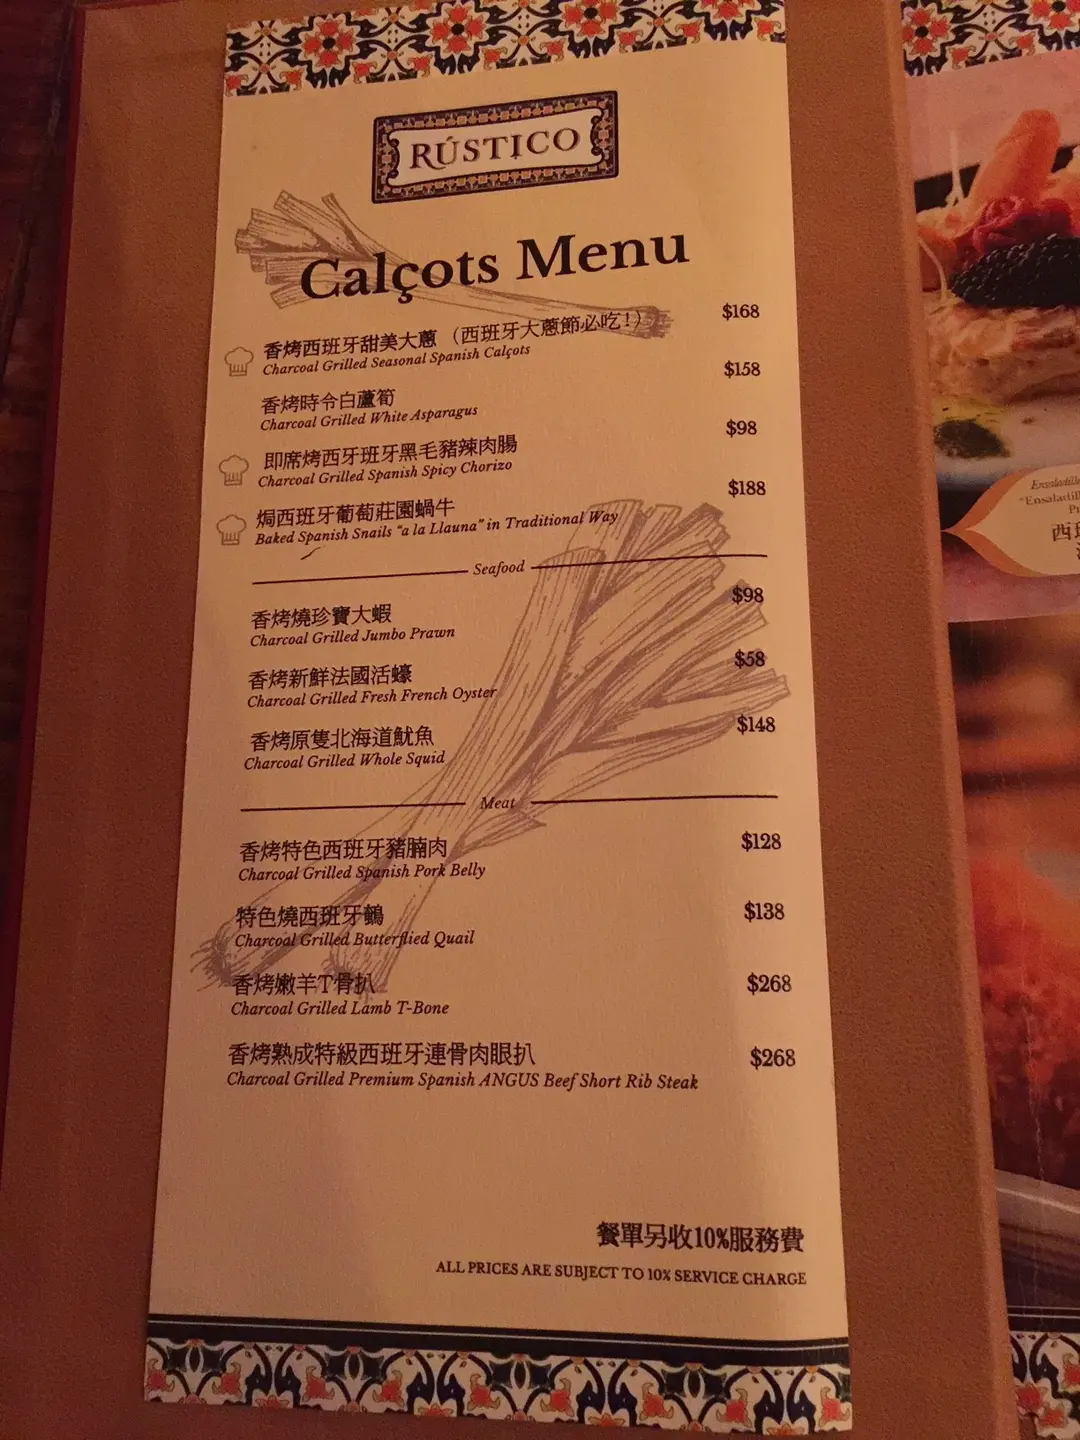 RÚSTICO
Calçots Menu
香烤西班牙甜美大蔥 （西班牙大蔥節必吃！） $168
Charcoal Grilled Seasonal Spanish Calçots
香烤時令白蘆筍 $158
Charcoal Grilled White Asparagus
即席烤西牙班牙黑毛豬辣肉腸 $98
Charcoal Grilled Spanish Spicy Chorizo
焗西班牙葡萄莊園蝸牛 $188
Baked Spanish Snails “a la Llauna” in Traditional Way
Seafood
香烤燒珍寶大蝦 $98
Charcoal Grilled Jumbo Prawn
香烤新鮮法國活蠔 $58
Charcoal Grilled Fresh French Oyster
香烤原隻北海道魷魚 $148
Charcoal Grilled Whole Squid
Meat
香烤特色西班牙豬腩肉 $128
Charcoal Grilled Spanish Pork Belly
特色燒西班牙鶉 $138
Charcoal Grilled Butterflied Quail
香烤嫩羊T骨扒 $268
Charcoal Grilled Lamb T-Bone
香烤熟成特級西班牙連骨肉眼扒 $268
Charcoal Grilled Premium Spanish ANGUS Beef Short Rib Steak
餐單另收10%服務費
ALL PRICES ARE SUBJECT TO 10% SERVICE CHARGE